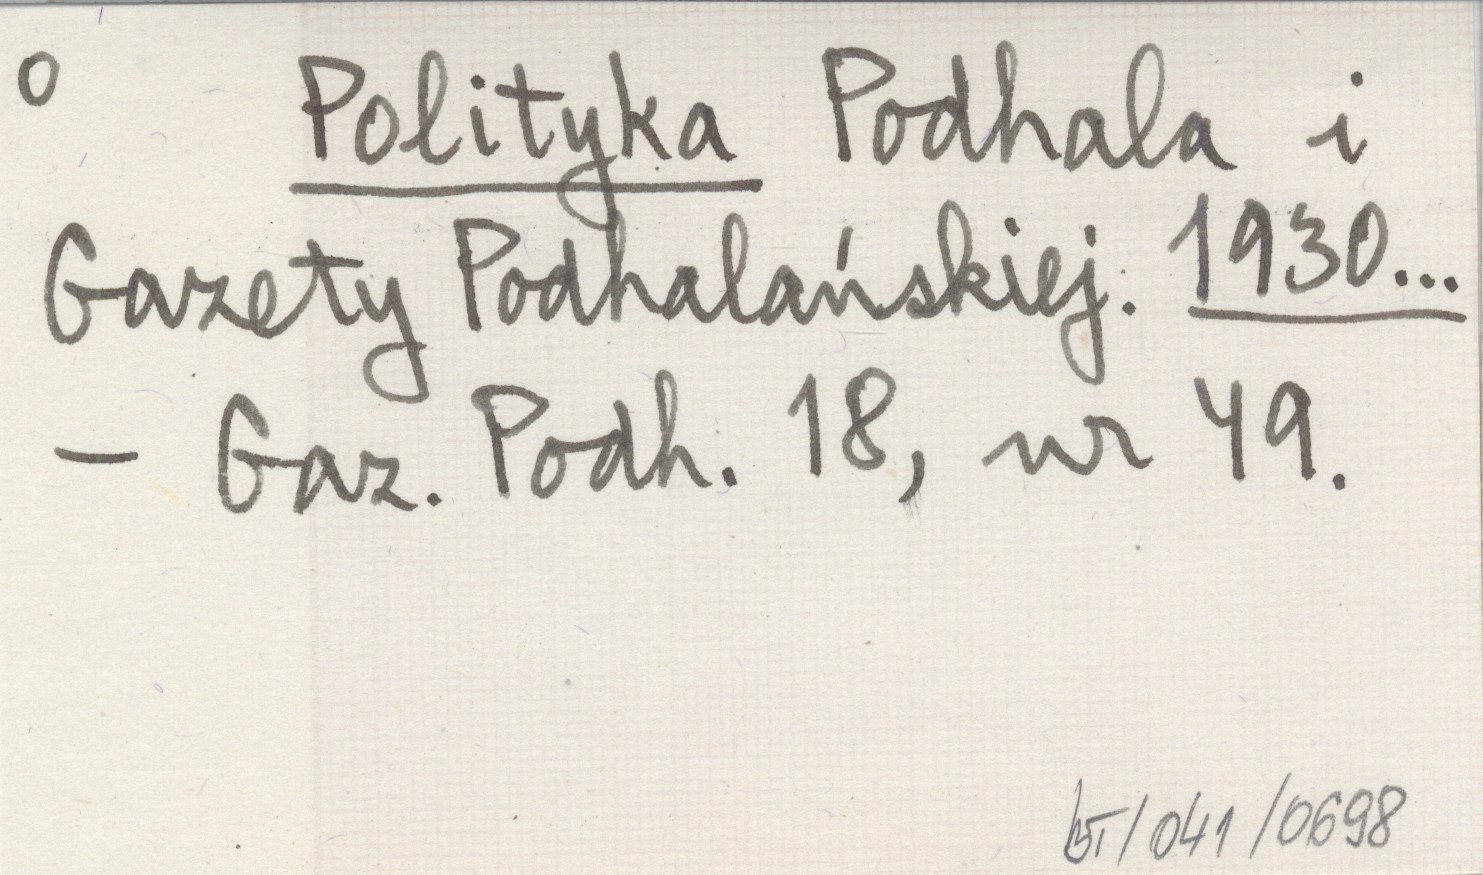 o Polityka Podhala i
Gazety Podhalańskiej. 1930...
– Gaz. Podh. 18, nr 49.
/041/0698